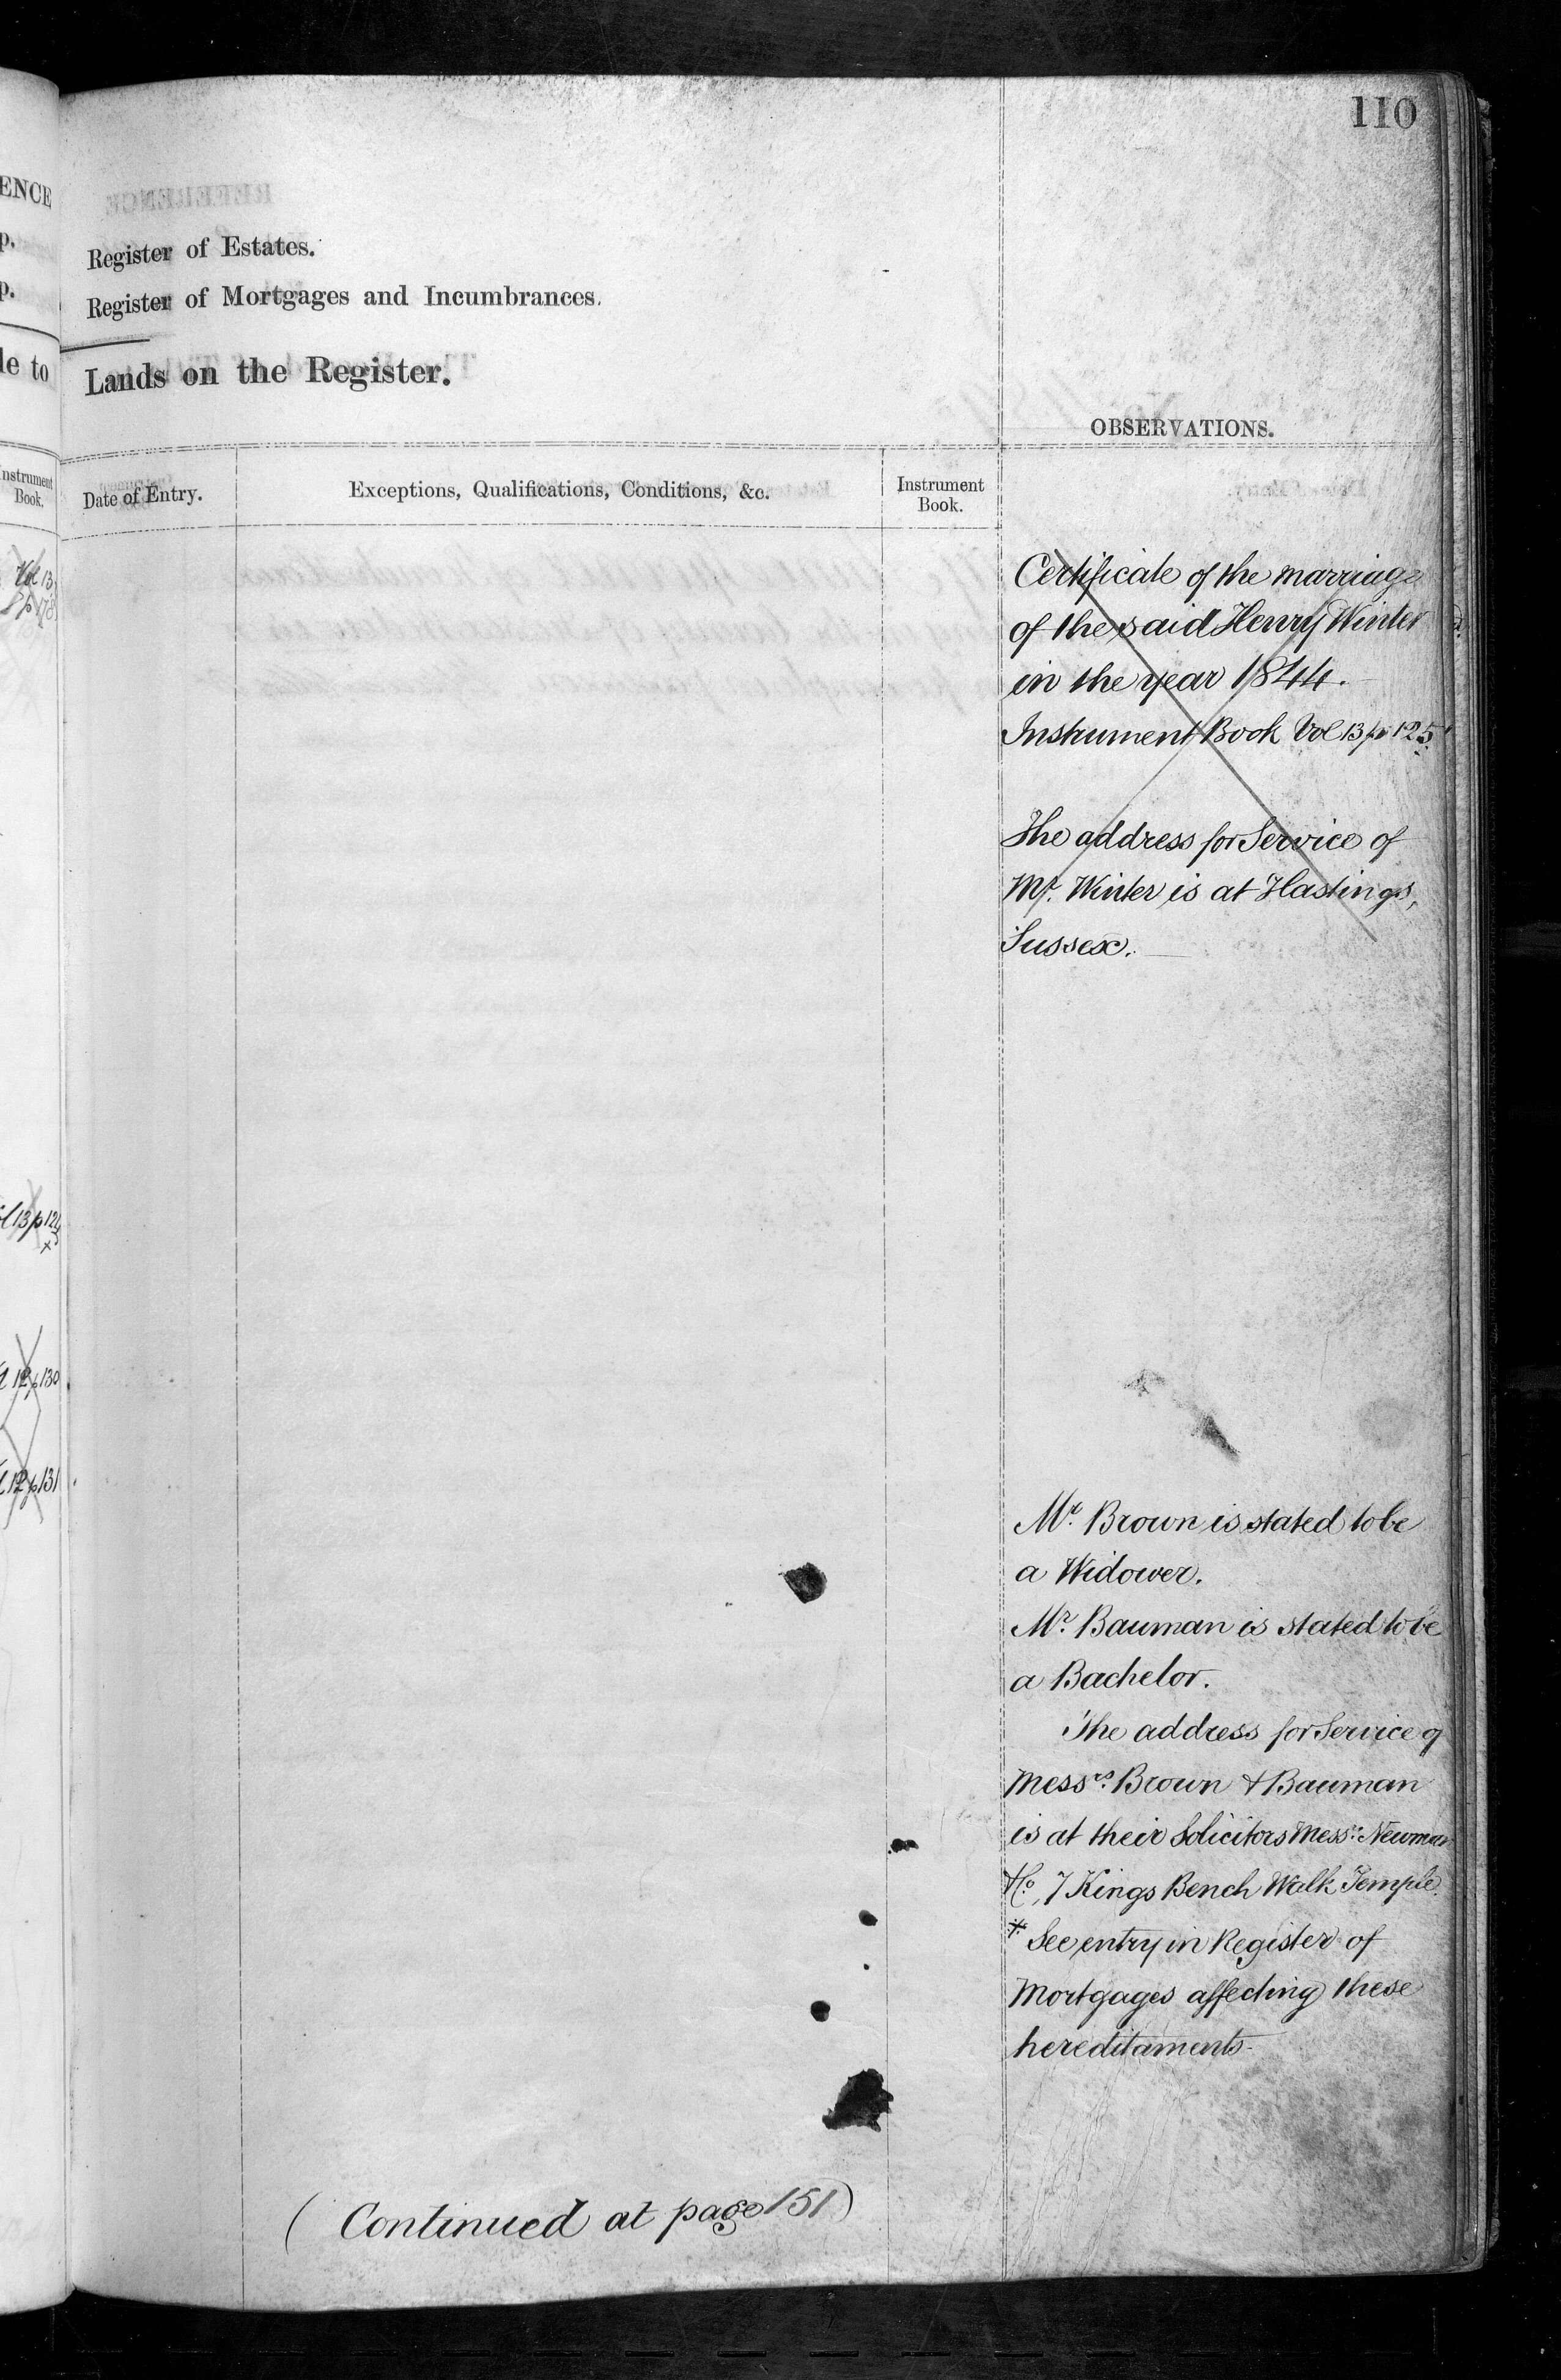 110
ENCE
p.
p.
le to
Instrument
Book.
Vol 13
p 178
13 p 124
12 p 130
12 p 131
Register of Estates.
Register of Mortgages and Incumbrances.
Lands on the Register.
OBSERVATIONS.
Date of Entry.
Exceptions, Qualifications, Conditions, &c.
Instrument
Book.
Certificate of the marriage
of the said Henry Winter
in the year 1844.
Instrument Book Vol 13 p 125
The address for Service of
Mr. Winter is at Hastings,
Sussex.
Mr. Brown is stated to be
a Widower.
Mr. Bauman is stated to be
a Bachelor.
The address for Service of
Messrs. Brown & Bauman
is at their Solicitors Messrs. Newman
& Co., 7 Kings Bench Walk Temple.
* See entry in Register of
Mortgages affecting these
hereditaments.
(Continued at page 151)